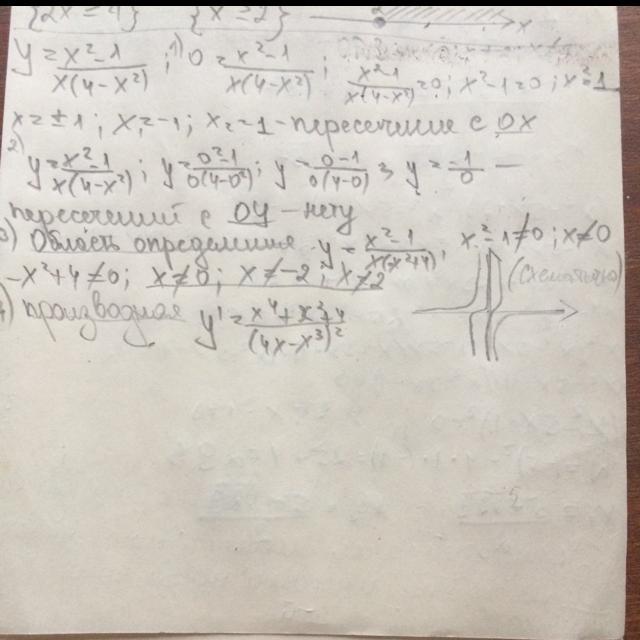 {2x ≥ 4} {x ≥ 2} x
y = x²-1 / x(4-x²) ; 1) 0 = x²-1 / x(4-x²) ; x²-1 / x(4-x²) = 0 ; x²-1=0 ; x²=1
x = ±1 ; x₁=-1 ; x₂=1 - пересечение с OX
2) y = x²-1 / x(4-x²) ; y = 0²-1 / 0(4-0²) ; y = 0-1 / 0(4-0) ; y = -1 / 0 —
пересечений с OY - нету
3) Область определения y = x²-1 / x(x²+4) ; x²-1≠0 ; x≠0
-x²+4≠0 ; x≠0 ; x≠-2 ; x≠2 (схематично)
4) производная y' = x⁴+x²+4 / (4x-x³)²